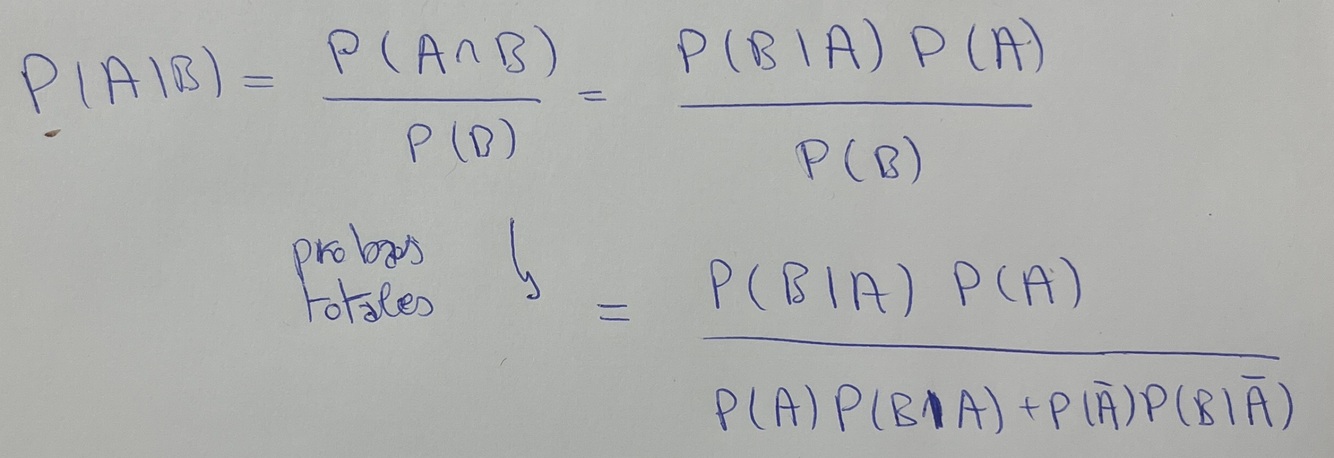 P(A|B) = P(A∩B) / P(B) = P(B|A) P(A) / P(B)
probas
totales
= P(B|A) P(A) / P(A)P(B|A) + P(Ā)P(B|Ā)